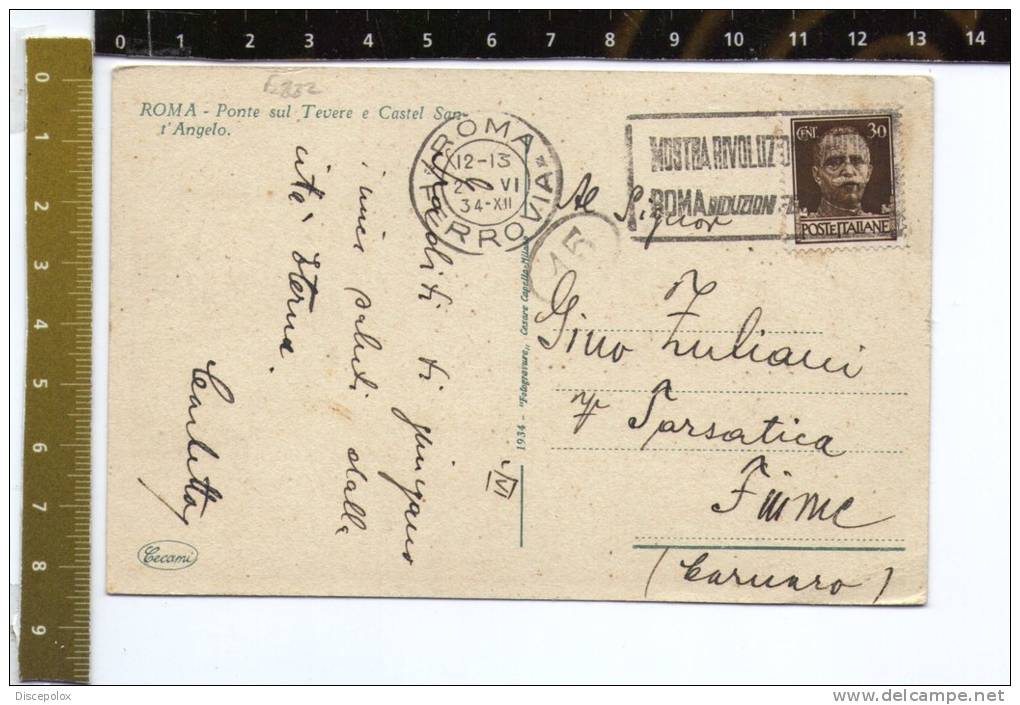 0 1 2 3 4 5 6 7 8 9 10 11 12 13 14
0 1 2 3 4 5 6 7 8 9
ROMA - Ponte sul Tevere e Castel San-
t'Angelo.
ROMA
12-13
VI
34-XII
FERROVIA
MOSTRA RIVOLUZIO
ROMA RIDUZIONI FE
CENT. 30
POSTE ITALIANE
15
Graditi ti giungano
i miei saluti dalla
città eterna.
Carletto
VI
1934 - "Fotogravure" Cesare Capello - Milano
Al Signor
Gino Zuliani
Tarsatica
Fiume
(Carnaro)
Cecami
Discepolox
delcampe.net